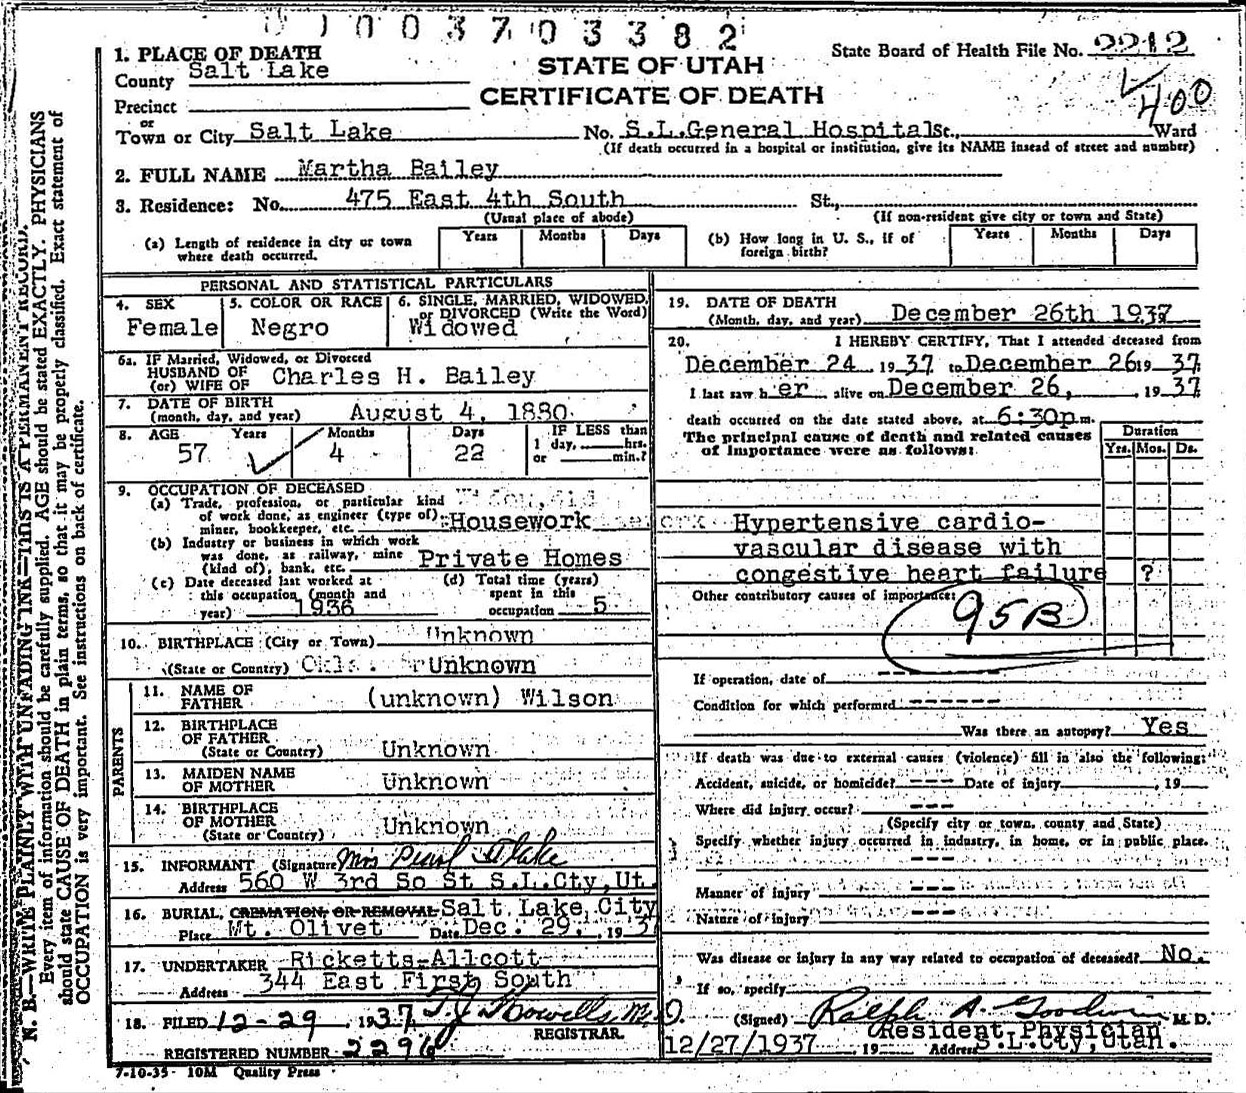 0 1 0 0 3 7 0 3 3 8 2
1. PLACE OF DEATH
County Salt Lake
STATE OF UTAH
State Board of Health File No. 2212
CERTIFICATE OF DEATH
400
Precinct
or
Town or City Salt Lake No. S.L.General Hospital St., Ward
(If death occurred in a hospital or institution, give its NAME instead of street and number)
2. FULL NAME Martha Bailey
3. Residence: No. 475 East 4th South St.,
(Usual place of abode) (If non-resident give city or town and State)
(a) Length of residence in city or town where death occurred. Years Months Days
(b) How long in U. S., if of foreign birth? Years Months Days
PERSONAL AND STATISTICAL PARTICULARS
4. SEX Female
5. COLOR OR RACE Negro
6. SINGLE, MARRIED, WIDOWED, or DIVORCED (Write the Word) Widowed
6a. IF Married, Widowed, or Divorced
HUSBAND OF
(or) WIFE OF Charles H. Bailey
7. DATE OF BIRTH
(month, day, and year) August 4, 1880
8. AGE Years Months Days IF LESS than
57 4 22 1 day, hrs.
or min.?
9. OCCUPATION OF DECEASED
(a) Trade, profession, or particular kind
of work done, as engineer (type of)
miner, bookkeeper, etc. Housework
(b) Industry or business in which work
was done, as railway, mine
(kind of), bank, etc. Private Homes
(c) Date deceased last worked at
this occupation (month and
year) 1936
(d) Total time (years)
spent in this
occupation 5
10. BIRTHPLACE (City or Town) Unknown
(State or Country) Okla. Unknown
PARENTS
11. NAME OF
FATHER (unknown) Wilson
12. BIRTHPLACE
OF FATHER
(State or Country) Unknown
13. MAIDEN NAME
OF MOTHER Unknown
14. BIRTHPLACE
OF MOTHER
(State or Country) Unknown
15. INFORMANT (Signature) Mrs Pearl
Address 560 W 3rd So St S.L.Cty,Ut.
16. BURIAL, CREMATION, OR REMOVAL Salt Lake City
Place Mt. Olivet Date Dec. 29, 193
17. UNDERTAKER Ricketts-Allcott
Address 344 East First South
18. FILED 12-29, 1937 T.J. Howells, M.D.
REGISTRAR.
REGISTERED NUMBER 2296
7-10-35 10M Quality Press
19. DATE OF DEATH
(Month, day, and year) December 26th 1937
20. I HEREBY CERTIFY, That I attended deceased from
December 24 1937 to December 26 1937
I last saw her alive on December 26, , 1937
death occurred on the date stated above, at 6:30p m.
The principal cause of death and related causes
of importance were as follows:
Duration
Yrs. Mos. Ds.
Hypertensive cardio-
vascular disease with
congestive heart failure ?
Other contributory causes of importance:
95B
If operation, date of ------
Condition for which performed ------
Was there an autopsy? Yes
If death was due to external causes (violence) fill in also the following:
Accident, suicide, or homicide? --- Date of injury , 19
Where did injury occur? ---
(Specify city or town, county and State)
Specify whether injury occurred in industry, in home, or in public place.
---
Manner of injury ---
Nature of injury ---
Was disease or injury in any way related to occupation of deceased? No.
If so, specify
(Signed) Ralph A. Goodwin M. D.
Resident Physician
12/27/1937 19 Address S.L.Cty,Utah.
N. B.—WRITE PLAINLY WITH UNFADING INK—THIS IS A PERMANENT RECORD.
Every item of information should be carefully supplied. AGE should be stated EXACTLY. PHYSICIANS
should state CAUSE OF DEATH in plain terms, so that it may be properly classified. Exact statement of
OCCUPATION is very important. See instructions on back of certificate.